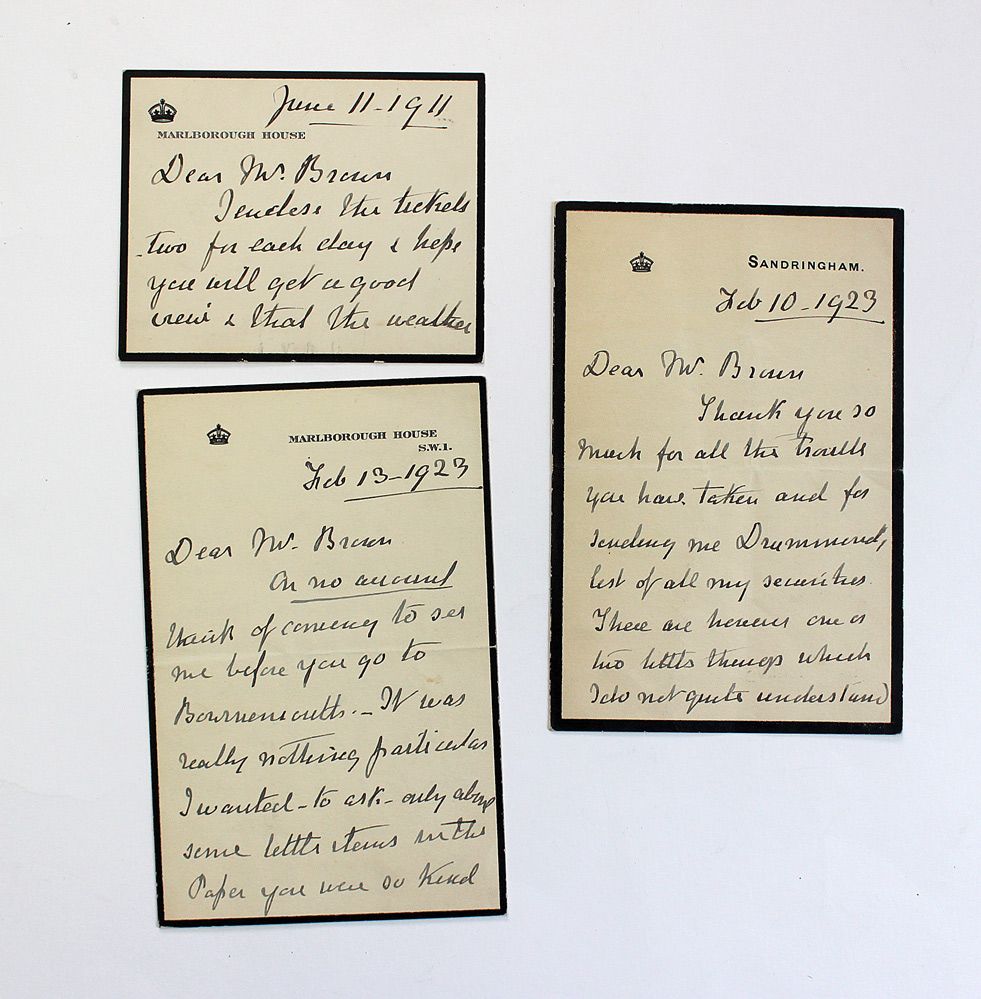 June 11-1911
MARLBOROUGH HOUSE
Dear Mr. Brown
I enclose the tickets
two for each day & hope
you will get a good
view & that the weather
MARLBOROUGH HOUSE
S.W.1.
Feb 13-1923
Dear Mr. Brown
On no account
think of coming to see
me before you go to
Bournemouth. - It was
really nothing particular
I wanted - to ask - only about
some little items in the
Paper you were so kind
SANDRINGHAM.
Feb 10-1923
Dear Mr. Brown
Thank you so
much for all the trouble
you have taken and for
sending me Drummond's
list of all my securities.
There are however one or
two little things which
I do not quite understand